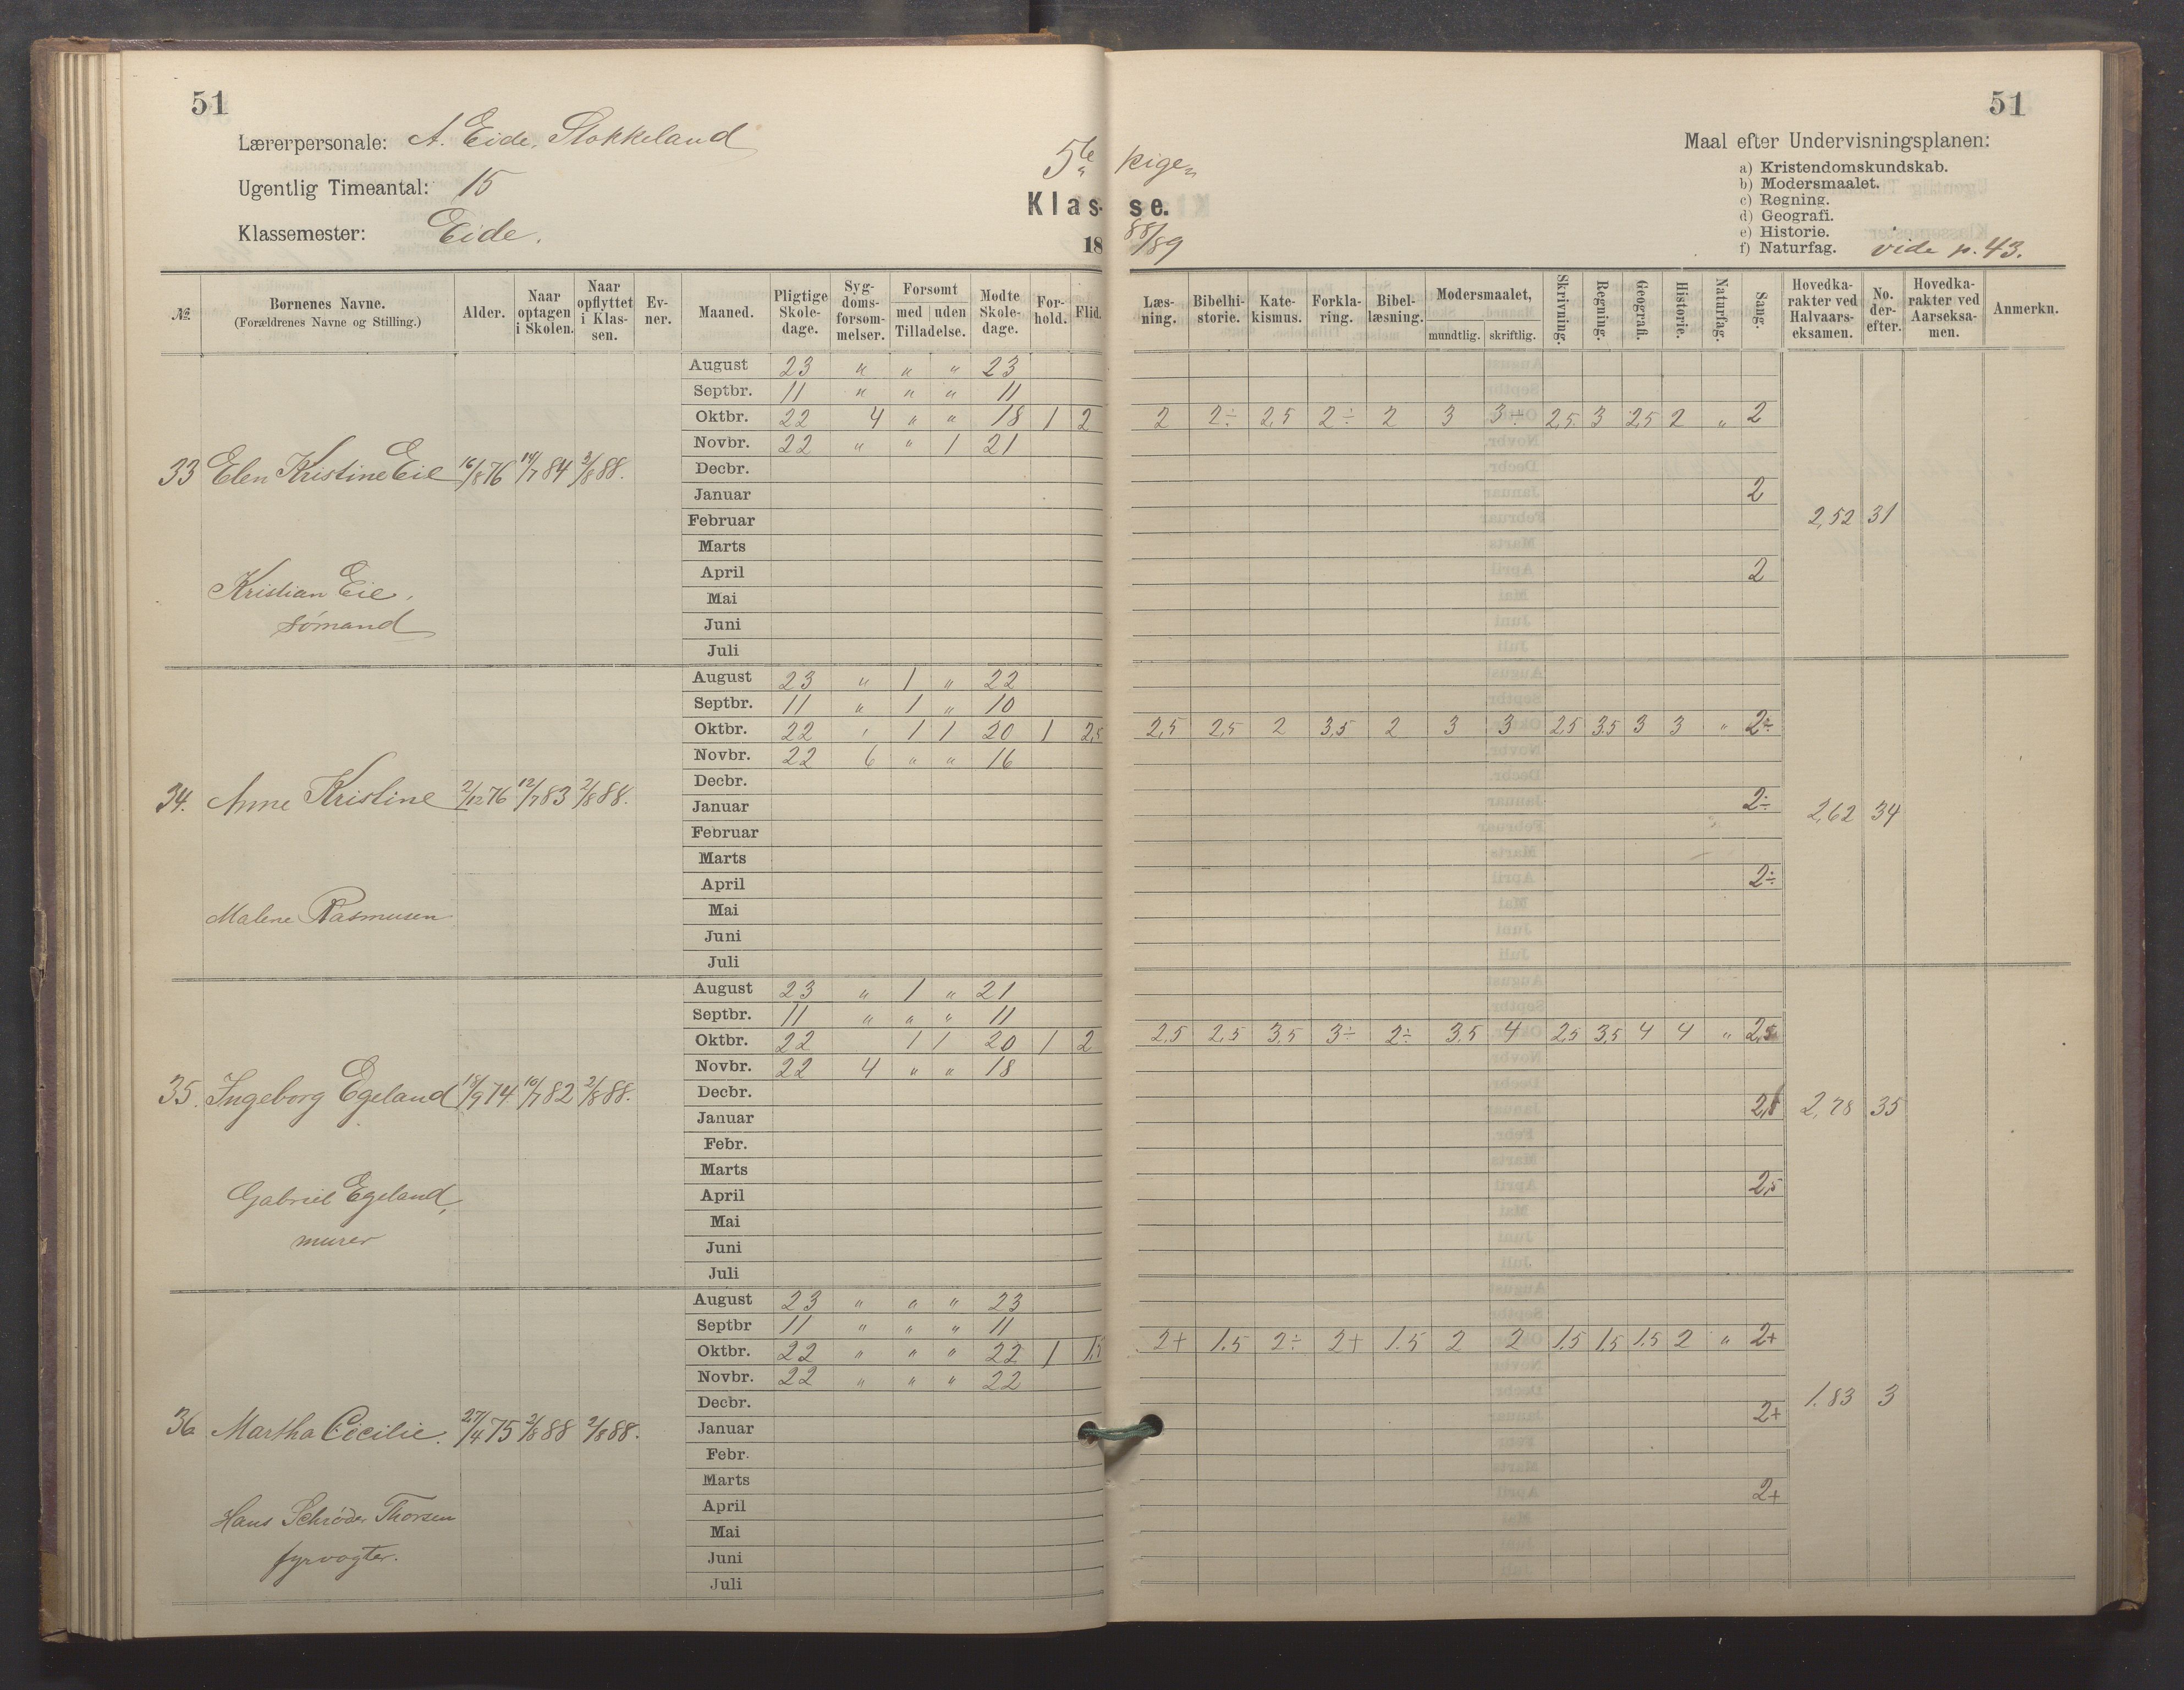 51
51
Lærerpersonale: A. Eide, Stokkeland
Ugentlig Timeantal: 15
Klassemester: Eide.
5te piger
Klasse.
1888/89
Maal efter Undervisningsplanen:
a) Kristendomskundskab.
b) Modersmaalet.
c) Regning.
d) Geografi.
e) Historie.
f) Naturfag. vide p. 43.
№ | Børnenes Navne. (Forældrenes Navne og Stilling.) | Alder. | Naar optagen i Skolen. | Naar opflyttet i Klassen. | Evner. | Maaned. | Pligtige Skoledage. | Sygdomsforsommelser. | Forsømt med uden Tilladelse. | Mødte Skoledage. | Forhold. | Flid. | Læsning. | Bibelhistorie. | Katekismus. | Forklaring. | Bibellæsning. | Modersmaalet, mundtlig. skriftlig. | Skrivning. | Regning. | Geografi. | Historie. | Naturfag. | Sang. | Hovedkarakter ved Halvaarseksamen. | No. derefter. | Hovedkarakter ved Aarseksamen. | Anmerkn.
August 23 " " " 23
Septbr. 11 " " " 11
Oktbr. 22 4 " " 18 1 2 2 2÷ 2,5 2÷ 2 3 3÷ 2,5 3 2,5 2 " 2
Novbr. 22 " " 1 21
33 Elen Kristine Eie 16/8 76 14/7 84 2/8 88. Decbr.
Januar 2
Februar 2,52 31
Marts
April 2
Kristian Eie, Mai
sømand Juni
Juli
August 23 " 1 " 22
Septbr. 11 " 1 " 10
Oktbr. 22 " 1 1 20 1 2,5 2,5 2,5 2 3,5 2 3 3 2,5 3,5 3 3 " 2÷
Novbr. 22 6 " " 16
Decbr.
34. Anne Kristine 2/12 76 12/7 83 2/8 88. Januar 2÷ 2,62 34
Februar
Marts
April 2÷
Malene Rasmusen Mai
Juni
Juli
August 23 " 1 " 21
Septbr. 11 " " " 11
Oktbr. 22 1 1 20 1 2 2,5 2,5 3,5 3÷ 2÷ 3,5 4 2,5 3,5 4 4 " 2,5
Novbr. 22 4 " " 18
35. Ingeborg Egeland 18/9 74 10/7 82 2/8 88. Decbr.
Januar 2,78 35
Febr.
Marts
Gabriel Egeland, April 2,5
Mai
murer Juni
Juli
August 23 " " " 23
Septbr 11 " " " 11
Oktbr. 22 " " " 22 1 1,5 2+ 1.5 2÷ 2+ 1.5 2 2 1.5 1.5 1.5 2 " 2+
Novbr. 22 " " " 22
Decbr. 1.83 3
36 Martha Cecilie. 27/4 75 2/8 88 2/8 88. Januar 2+
Febr.
Marts
Hans Schrøder Thorsen April 2+
Mai
fyrvogter. Juni
Juli